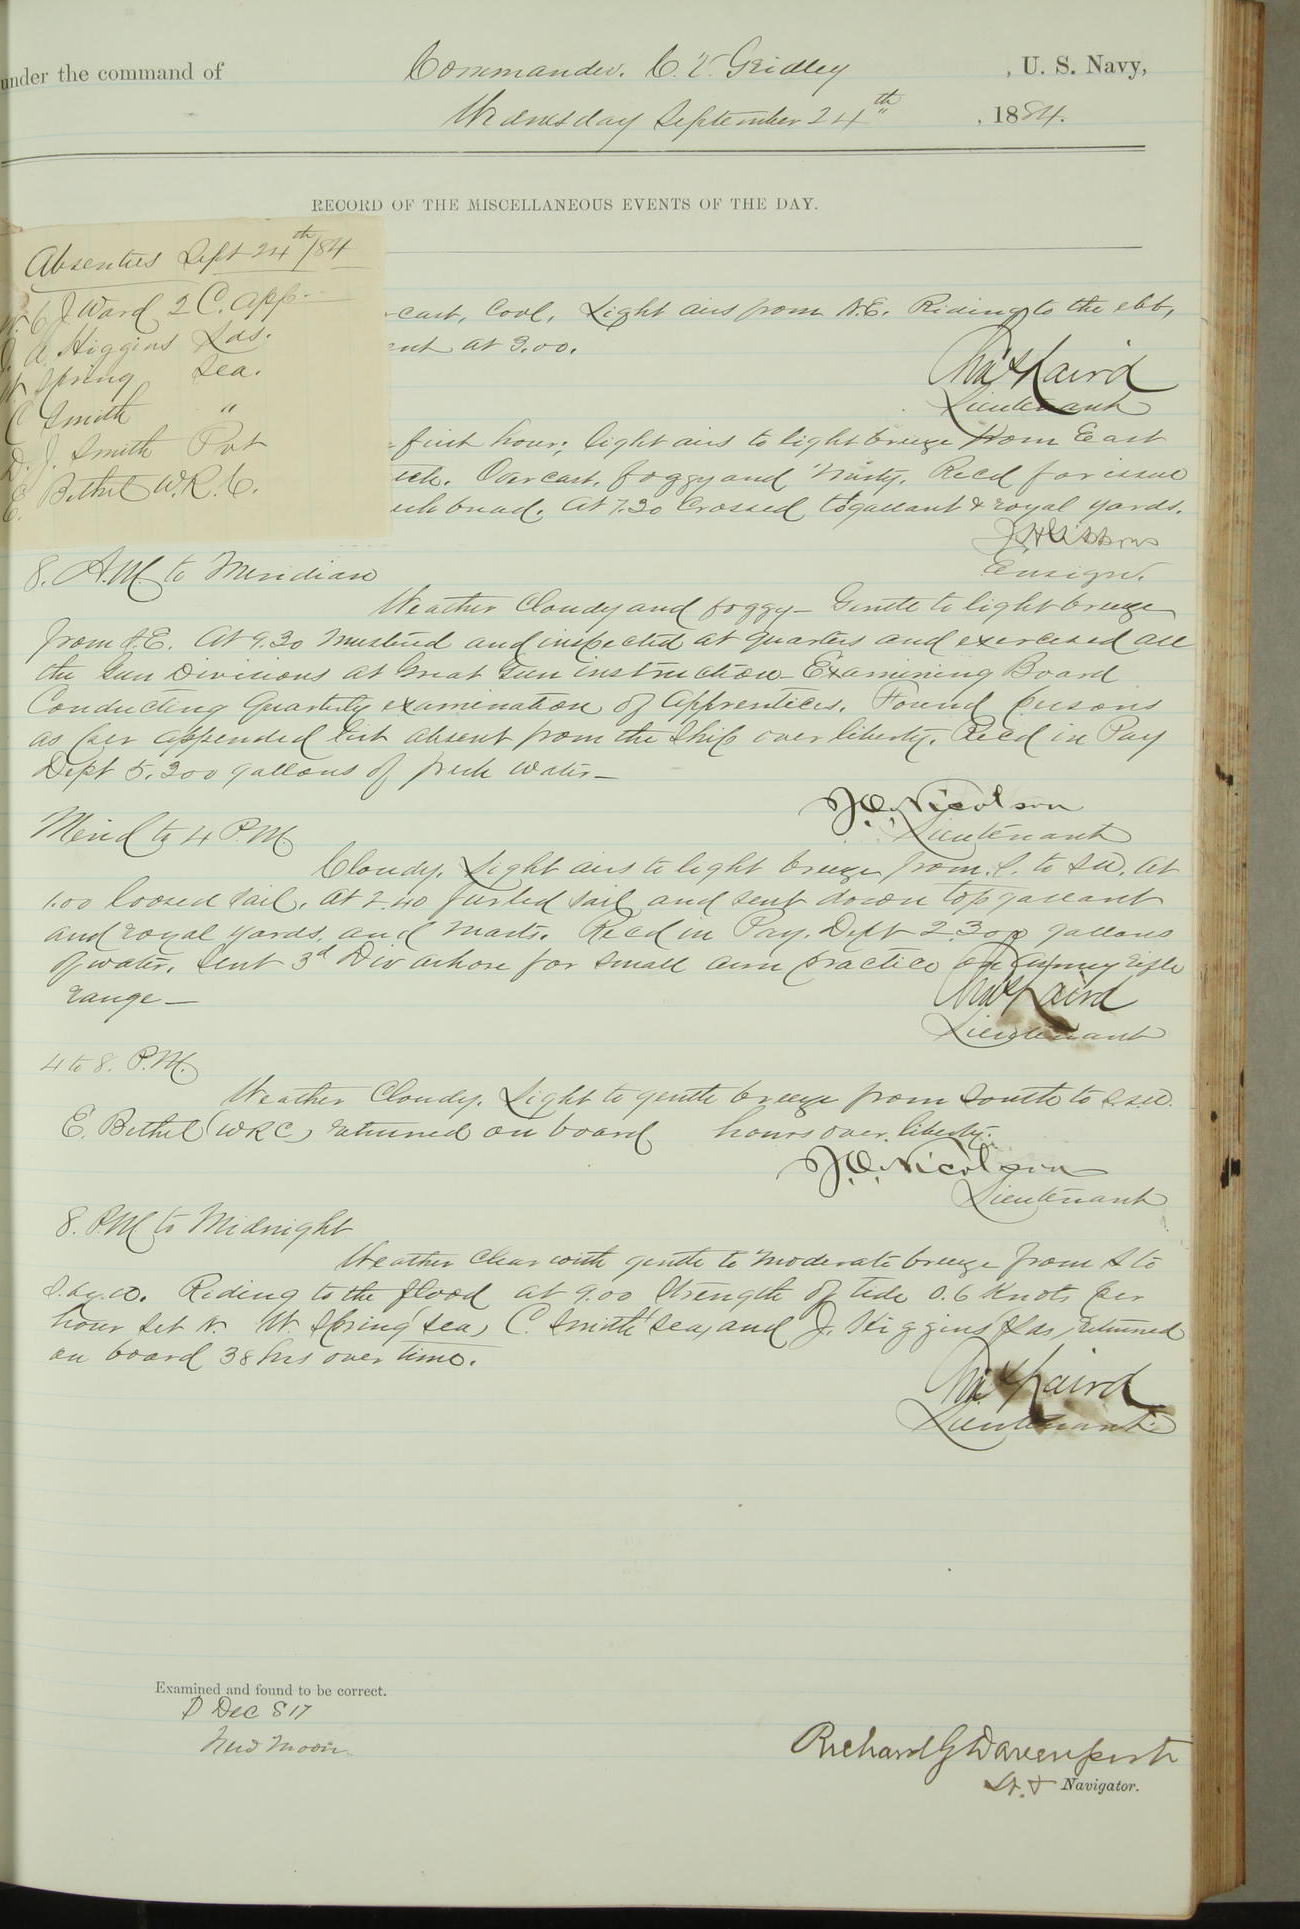 under the command of Commander. C. V. Gridley , U. S. Navy,
Wednesday September 24th , 1884.
RECORD OF THE MISCELLANEOUS EVENTS OF THE DAY.
Absenties Sept 24th/84
C J Ward 2 C. App.
A. Higgins Lds.
W Spring Sea.
C Smith "
D. J. Smith Pvt
E. Bethel W.R.C.
cast, Cool, Light airs from N.E. Riding to the ebb,
at 3.00.
Chas Laird
Lieutenant
first hour; light airs to light breeze from East
Overcast, foggy and misty. Recd for issue
bread. At 7.30 Crossed to'gallant & royal yards.
J H Gibbons
Ensign.
8. A.M. to Meridian
Weather Cloudy and foggy - Gentle to light breeze
from S.E. At 9.30 Mustered and inspected at quarters and exercised all
the Gun Divisions at Great Gun instruction - Examining Board
Conducting Quarterly examination of Apprentices. Found persons
as per appended list absent from the Ship over liberty. Recd in Pay
Dept 5,300 gallons of fresh water -
J.O. Nicolson
Lieutenant
Merid to 4 P.M.
Cloudy. Light airs to light breeze from S. to SW. At
1.00 loosed sail. At 2.40 furled sail and sent down topgallant
and royal yards, and masts. Recd in Pay. Dept 2,300 gallons
of water. Sent 3d Div ashore for small arm practice on Army rifle
range -
Chas Laird
Lieutenant
4 to 8. P.M.
Weather Cloudy. Light to gentle breeze from South to S.S.W.
E. Bethel (WRC) returned on board hours over liberty.
J.O. Nicolson
Lieutenant
8. P.M to Midnight
Weather Clear with gentle to moderate breeze from S to
S.W. Riding to the flood at 9.00 Strength of tide 0.6 Knots per
hour set N. W. Spring (Sea) C. Smith (Sea) and J. Higgins (Lds) returned
on board 38 hrs over time.
Chas Laird
Lieutenant.
Examined and found to be correct.
D Dec 8 17
New Moon
Richard G Davenport
Lt. & Navigator.